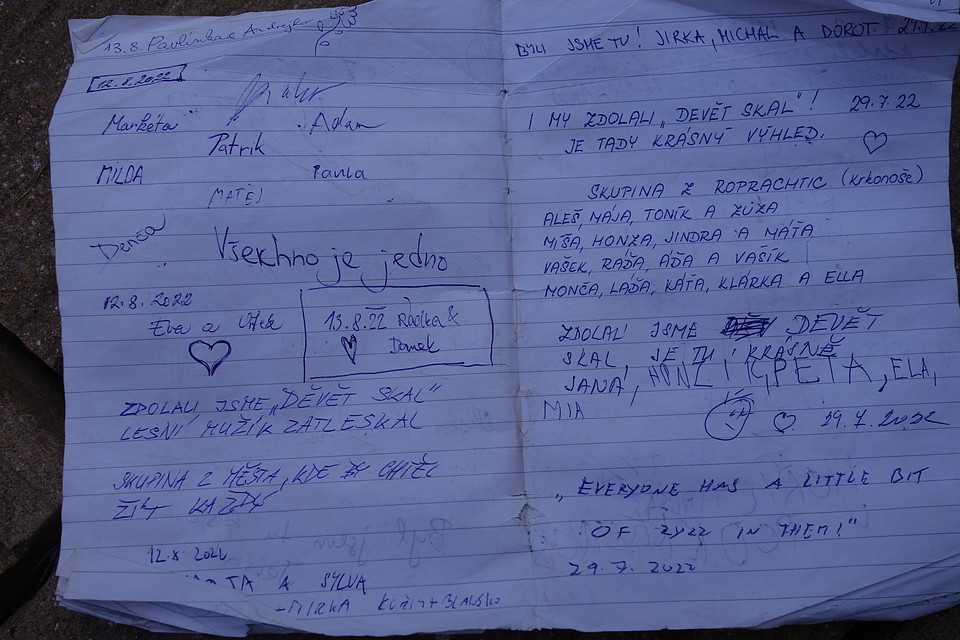 13.8 Pavlínka &
12.8.2022
Markéta
Adam
Patrik
MILDA
Pavla
MATĚJ
Denča
Všechno je jedno
12.8.2022
Eva a Vítek
13.8.22 Radka &
Domek
ZDOLALI JSME „DEVĚT SKAL"
LESNÍ MUŽÍK ZATLESKAL
SKUPINA Z MĚSTA, KDE BY CHTĚL
ŽÍT KAŽDÝ
12.8.2022
A SYLVA
-MIRKA
BYLI JSME TU! JIRKA, MICHAL A DOROT 29.7.22
I MY ZDOLALI „DEVĚT SKAL"! 29.7.22
JE TADY KRÁSNÝ VÝHLED.
SKUPINA Z ROPRACHTIC (Krkonoše)
ALEŠ, MÁJA, TONÍK A ZUZA
MÍŠA, HONZA, JINDRA A MÁŤA
VAŠEK, RÁĎA, ÁĎA A VAŠÍK
MONČA, LÁĎA, KÁŤA, KLÁRKA A ELLA
ZDOLALI JSME DEVĚT
SKAL, JE TU KRÁSNĚ
JANA, HONZÍK, PEŤA, ELA,
MIA
29.7.2022
„EVERYONE HAS A LITTLE BIT
OF ZYZZ IN THEM!"
29.7.2022